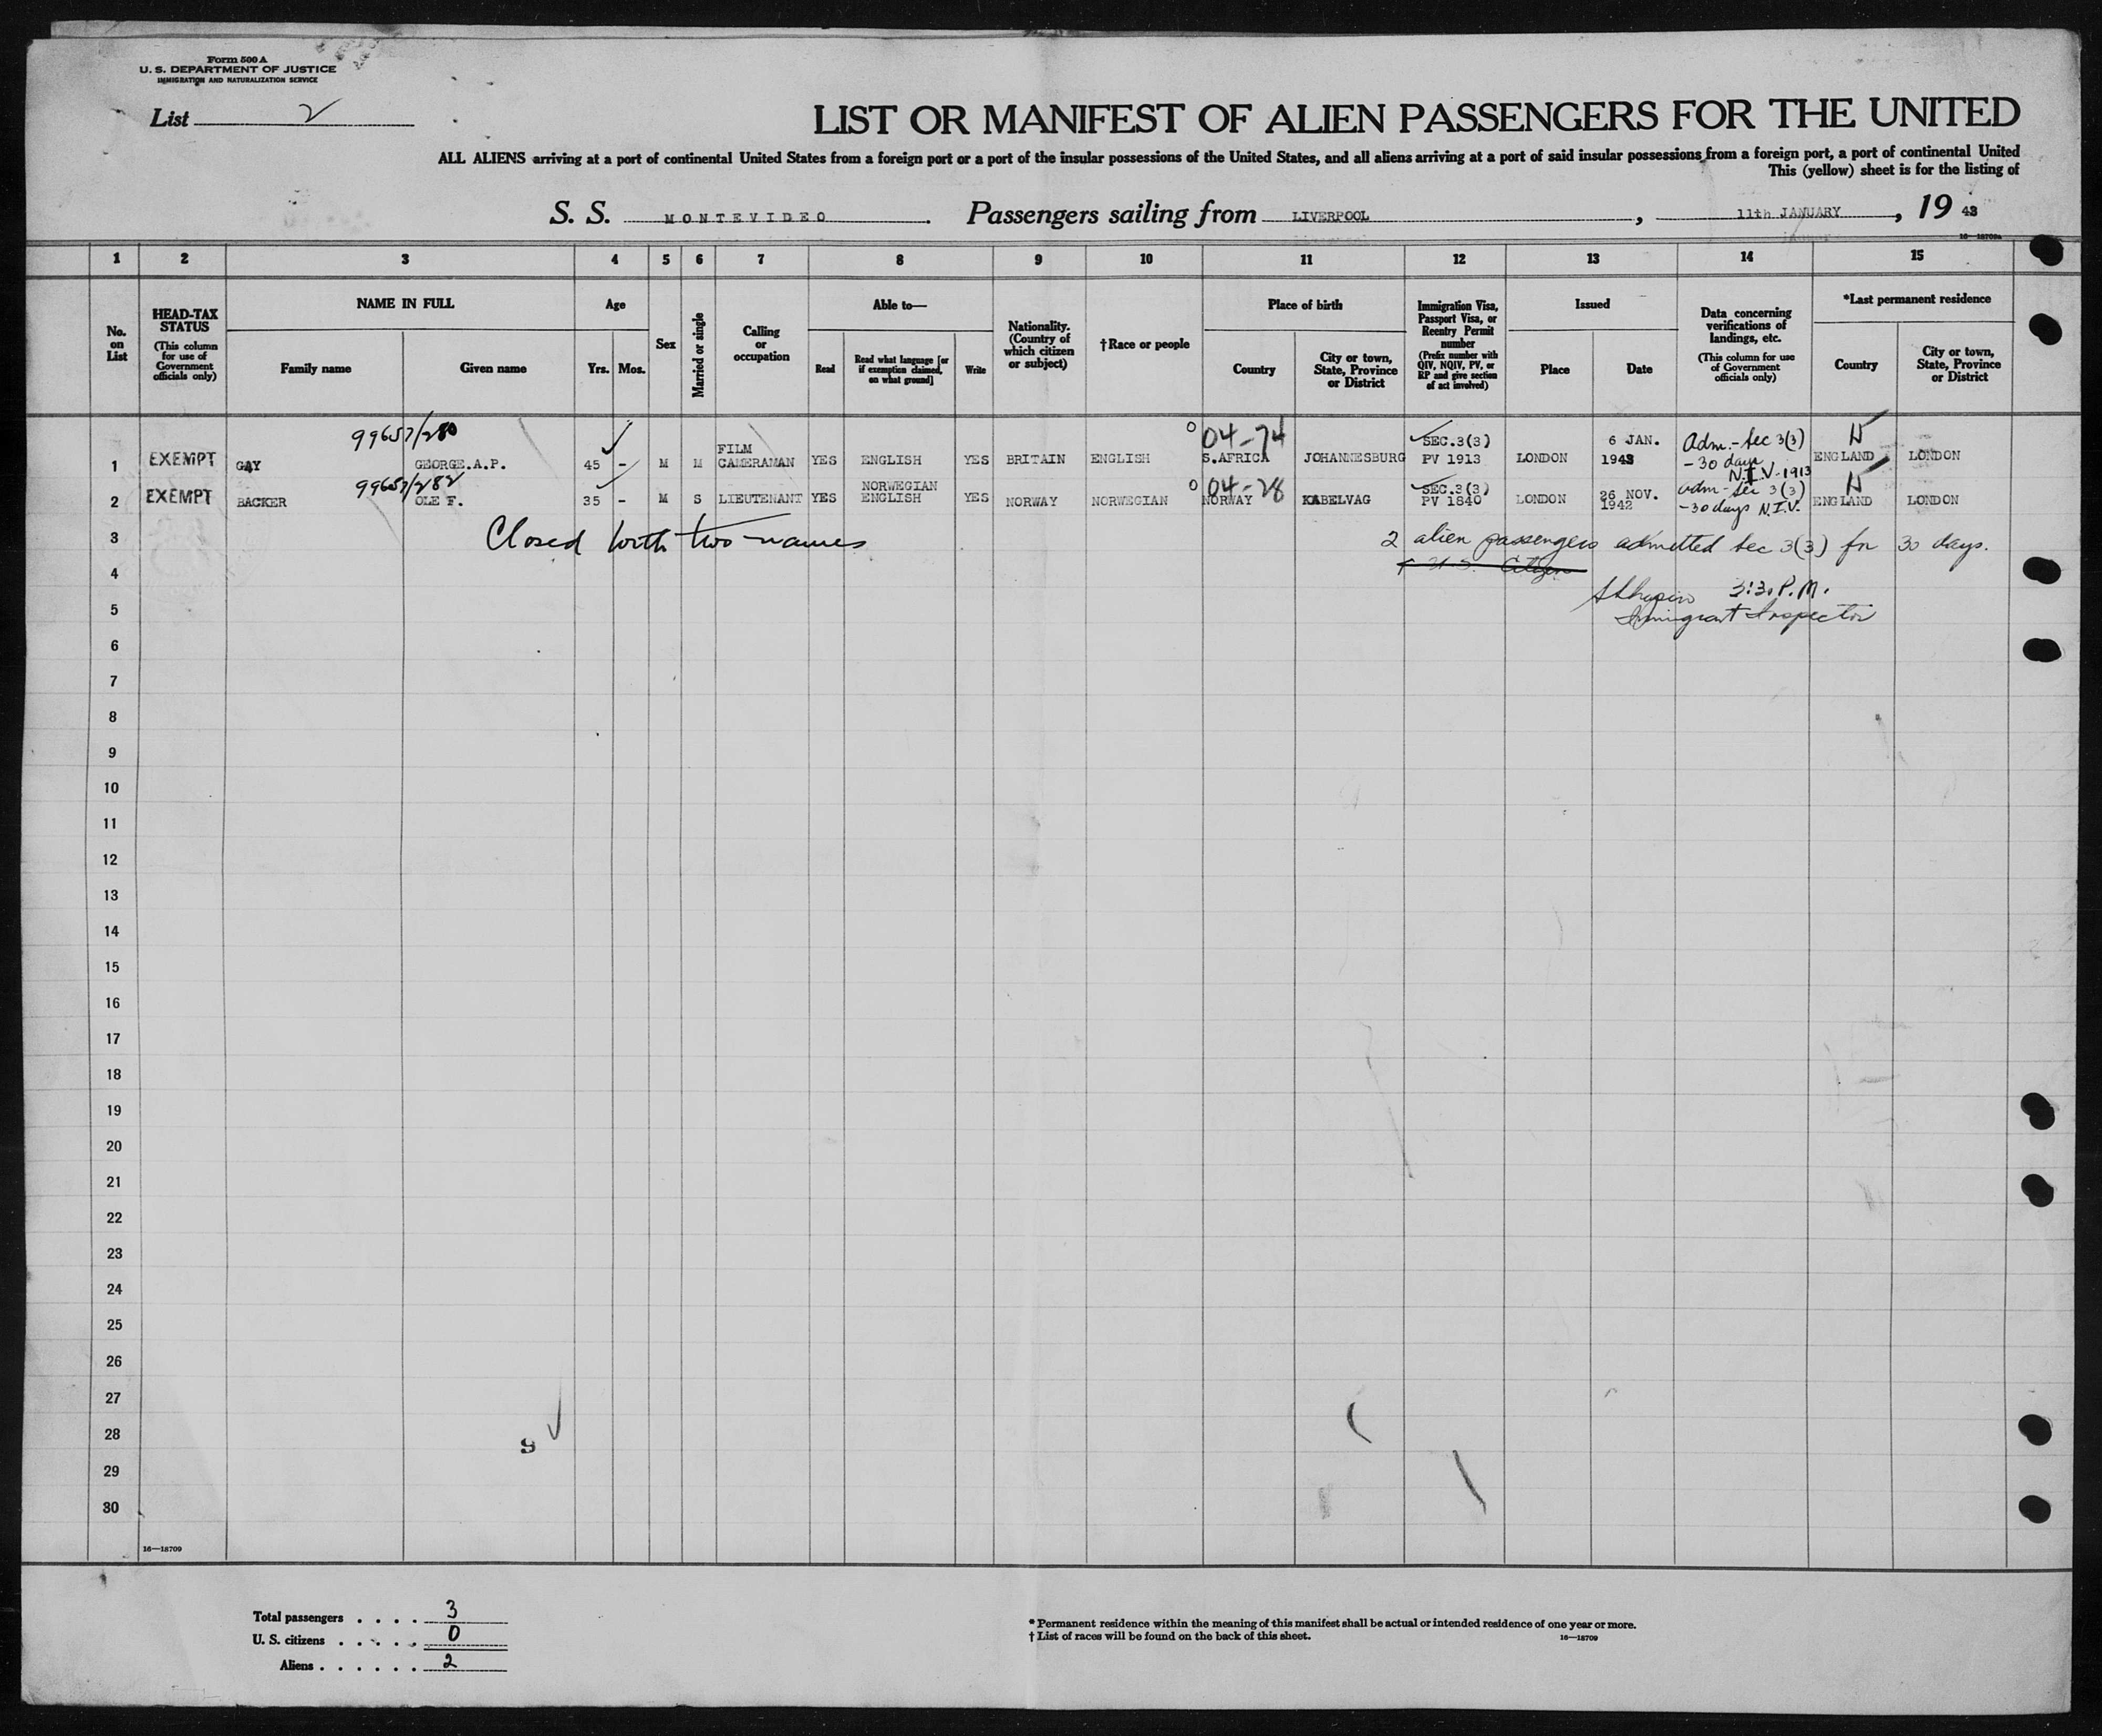 Form 500 A
U. S. DEPARTMENT OF JUSTICE
IMMIGRATION AND NATURALIZATION SERVICE
List 2
LIST OR MANIFEST OF ALIEN PASSENGERS FOR THE UNITED
ALL ALIENS arriving at a port of continental United States from a foreign port or a port of the insular possessions of the United States, and all aliens arriving at a port of said insular possessions from a foreign port, a port of continental United
This (yellow) sheet is for the listing of
S. S. MONTEVIDEO. Passengers sailing from LIVERPOOL, 11th JANUARY, 19 43
16—18709a
1 2 3 4 5 6 7 8 9 10 11 12 13 14 15
No. on List
HEAD-TAX STATUS (This column for use of Government officials only)
NAME IN FULL
Family name
Given name
Age
Yrs.
Mos.
Sex
Married or single
Calling or occupation
Able to—
Read
Read what language [or if exemption claimed, on what ground]
Write
Nationality. (Country of which citizen or subject)
†Race or people
Place of birth
Country
City or town, State, Province or District
Immigration Visa, Passport Visa, or Reentry Permit number (Prefix number with QIV, NQIV, PV, or RP and give section of act involved)
Issued
Place
Date
Data concerning verifications of landings, etc. (This column for use of Government officials only)
*Last permanent residence
Country
City or town, State, Province or District
99657/280
04-74
1 EXEMPT GAY GEORGE.A.P. 45 - M M FILM CAMERAMAN YES ENGLISH YES BRITAIN ENGLISH S.AFRICA JOHANNESBURG SEC.3(3) PV 1913 LONDON 6 JAN. 1943 Adm.-Sec 3(3) -30 days N.I.V.-1913 ENGLAND LONDON
99657/282
04-28
2 EXEMPT BACKER OLE F. 35 - M S LIEUTENANT YES NORWEGIAN ENGLISH YES NORWAY NORWEGIAN NORWAY KABELVAG SEC.3(3) PV 1840 LONDON 26 NOV. 1942 adm-Sec 3(3) -30 days N.I.V. ENGLAND LONDON
3 Closed with two names 2 alien passengers admitted Sec 3(3) for 30 days.
4
5 Immigrant Inspector
6
7
8
9
10
11
12
13
14
15
16
17
18
19
20
21
22
23
24
25
26
27
28
29
30
16—18709
Total passengers . . . . 3
U. S. citizens . . . . . 0
Aliens . . . . . . 2
* Permanent residence within the meaning of this manifest shall be actual or intended residence of one year or more.
† List of races will be found on the back of this sheet.
16—18709